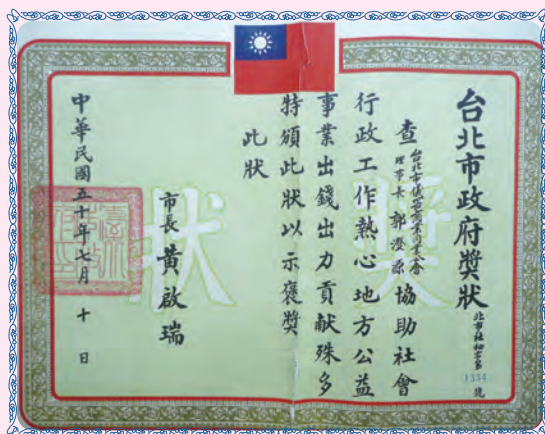 台北市政府獎狀
北市社初字第1334號
查台北市儀器商業同業公會理事長郭澄源協助社會
行政工作熱心地方公益
事業出錢出力貢献殊多
特頒此狀以示褒獎
此狀
市長黃啟瑞
中華民國五十年七月十日
獎狀